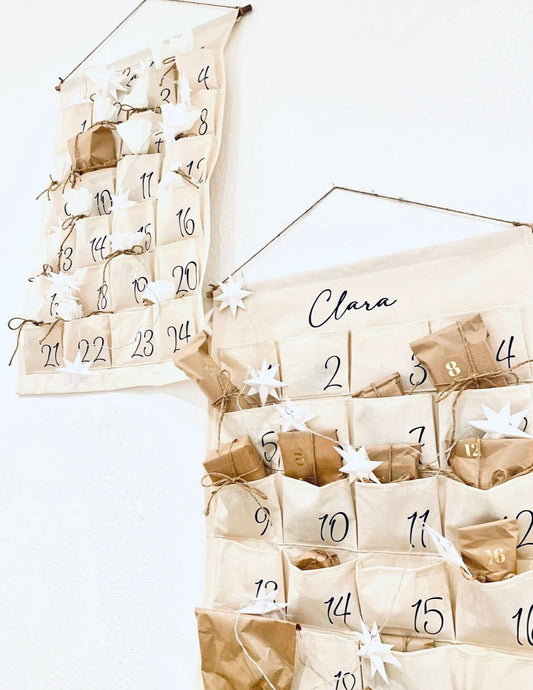 3 4
8
11 12
10
14 15 16
13
18 19 20
21 22 23 24
Clara
2 3 4
8
5 7
12
9 10 11 12
16
13 14 15 16